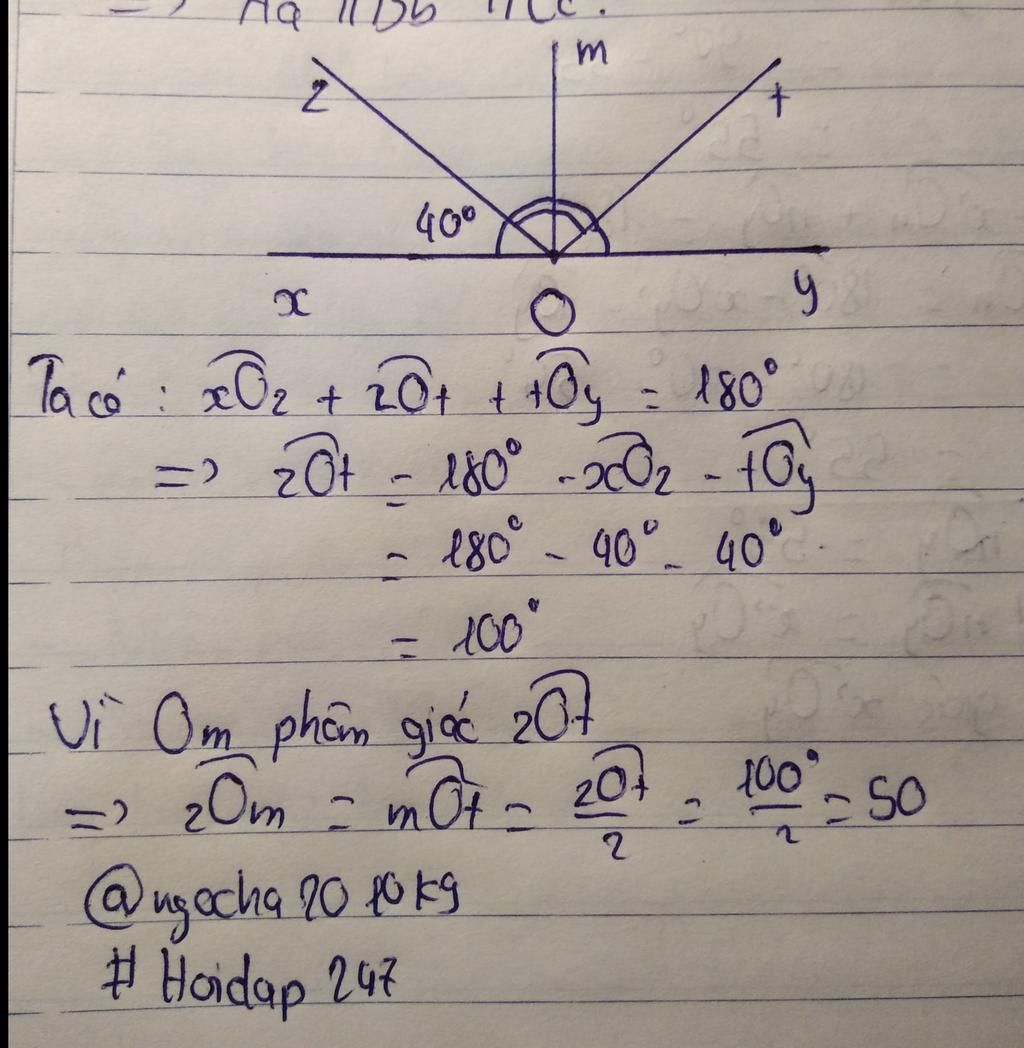 => Aa // Bb // Cc.
m
z
t
40°
x
O
y
Ta có : xOz + zOt + tOy = 180°
=> zOt = 180° - xOz - tOy
= 180° - 40° - 40°
= 100°
Vì Om phân giác zOt
=> zOm = mOt = zOt/2 = 100°/2 = 50
@ngocha2010kg
# Hoidap 247